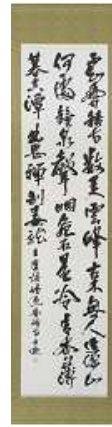 不知香積寺數里入雲峰古木無人徑深山
何處鐘泉聲咽危石日色冷青松薄
暮空潭曲安禪制毒龍